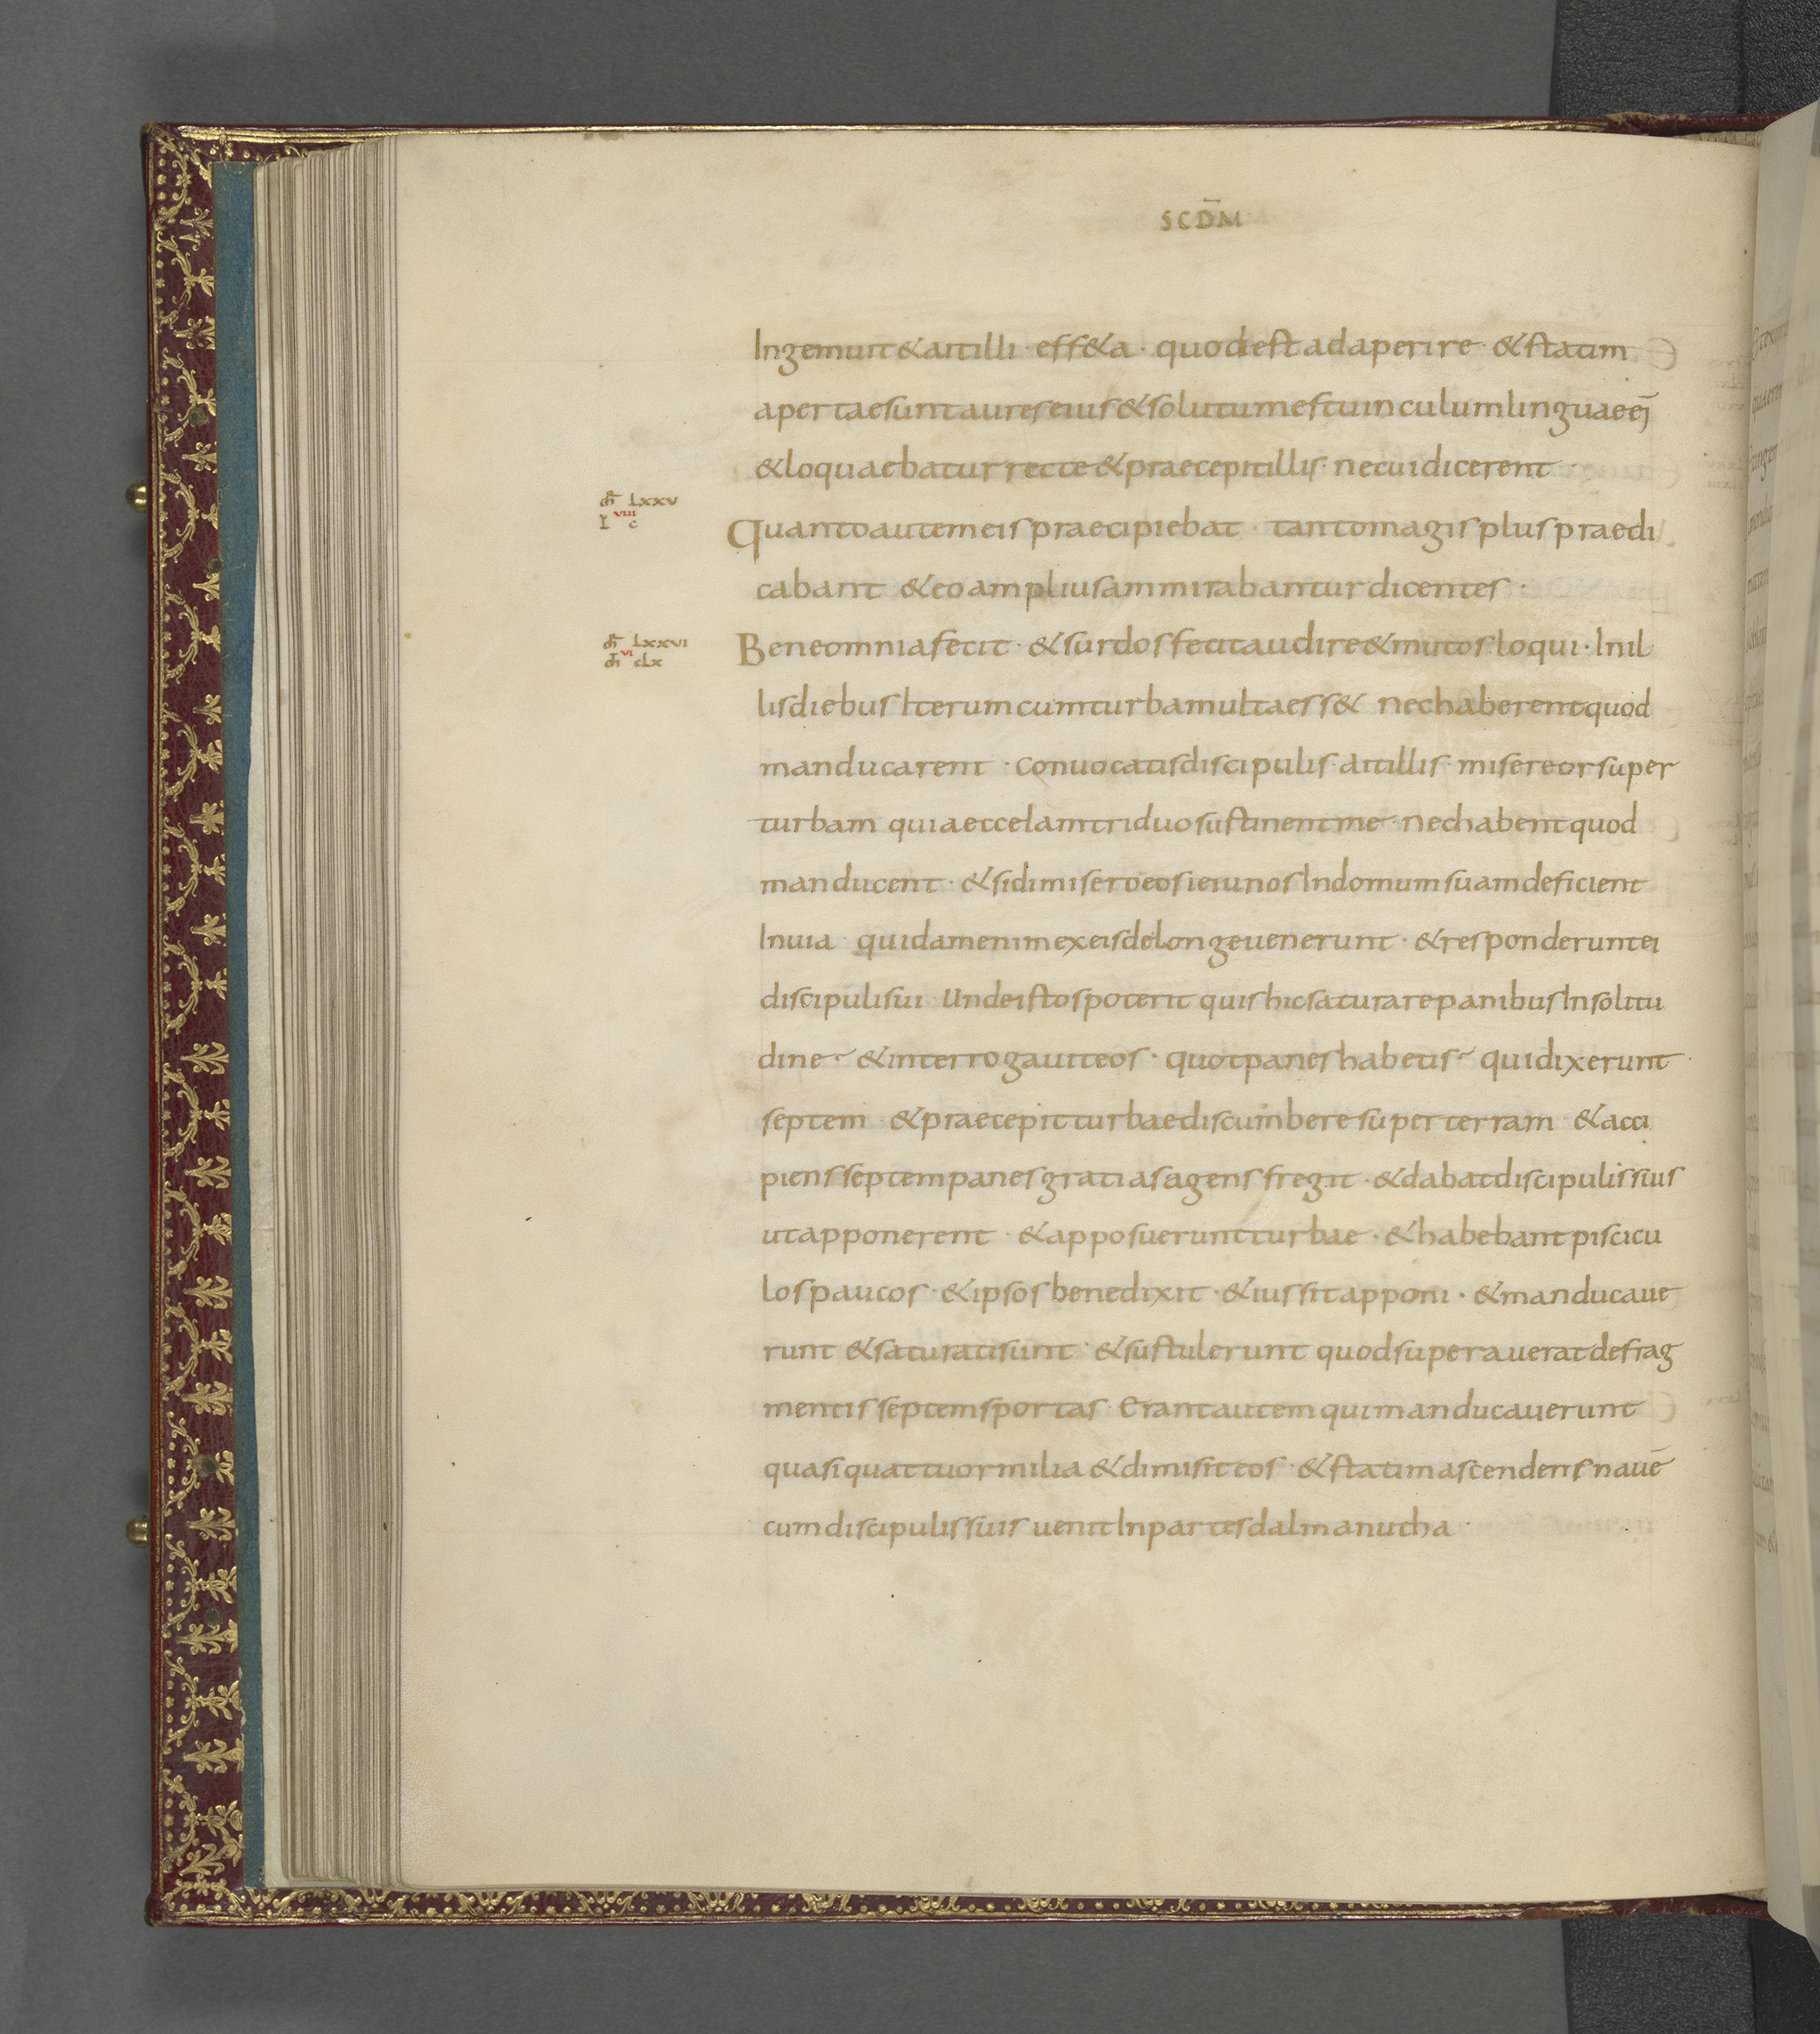 SCD̄M
Ingemuit & ait illi · eff&a · quod est adaperire · & statim
apertae sunt aures eius & solutum est uinculum linguae ei̅
& loquaebatur recte & praecepit illis · ne cui dicerent ·
m̅r̅ LXXV
VIII
I c
Quanto autem eis praecipiebat · tanto magis plus praedi
cabant & eo amplius ammirabantur dicentes ·
m̅r̅ LXXVI
VI
m̅t̅ cLx
Bene omnia fecit · & surdos fecit audire & mutos loqui · In il
lis diebus Iterum cum turba multa ess& nec haberent quod
manducarent · conuocatis discipulis · ait illis · misereor super
turbam quia ecce Iam triduo sustinent me · nec habent quod
manducent · & si dimisero eos ieiunos In domum suam deficient
In uia · quidam enim ex eis de longe uenerunt · & responderunt ei
discipuli sui · Unde istos poterit quis hic saturare panibus In solitu
dine · & interrogauit eos · quot panes habetis · qui dixerunt ·
septem · & praecepit turbae discumbere super terram & acci
piens septem panes gratias agens fregit · & dabat discipulis suis
ut apponerent · & apposuerunt turbae · & habebant piscicu
los paucos · & ipsos benedixit · & iussit apponi · & manducaue
runt & saturati sunt · & sustulerunt quod superauerat de frag
mentis septem sportas · Erant autem qui manducauerunt
quasi quattuor milia & dimisit eos · & statim ascendens nauē
cum discipulis suis uenit In partes dalmanutha ·